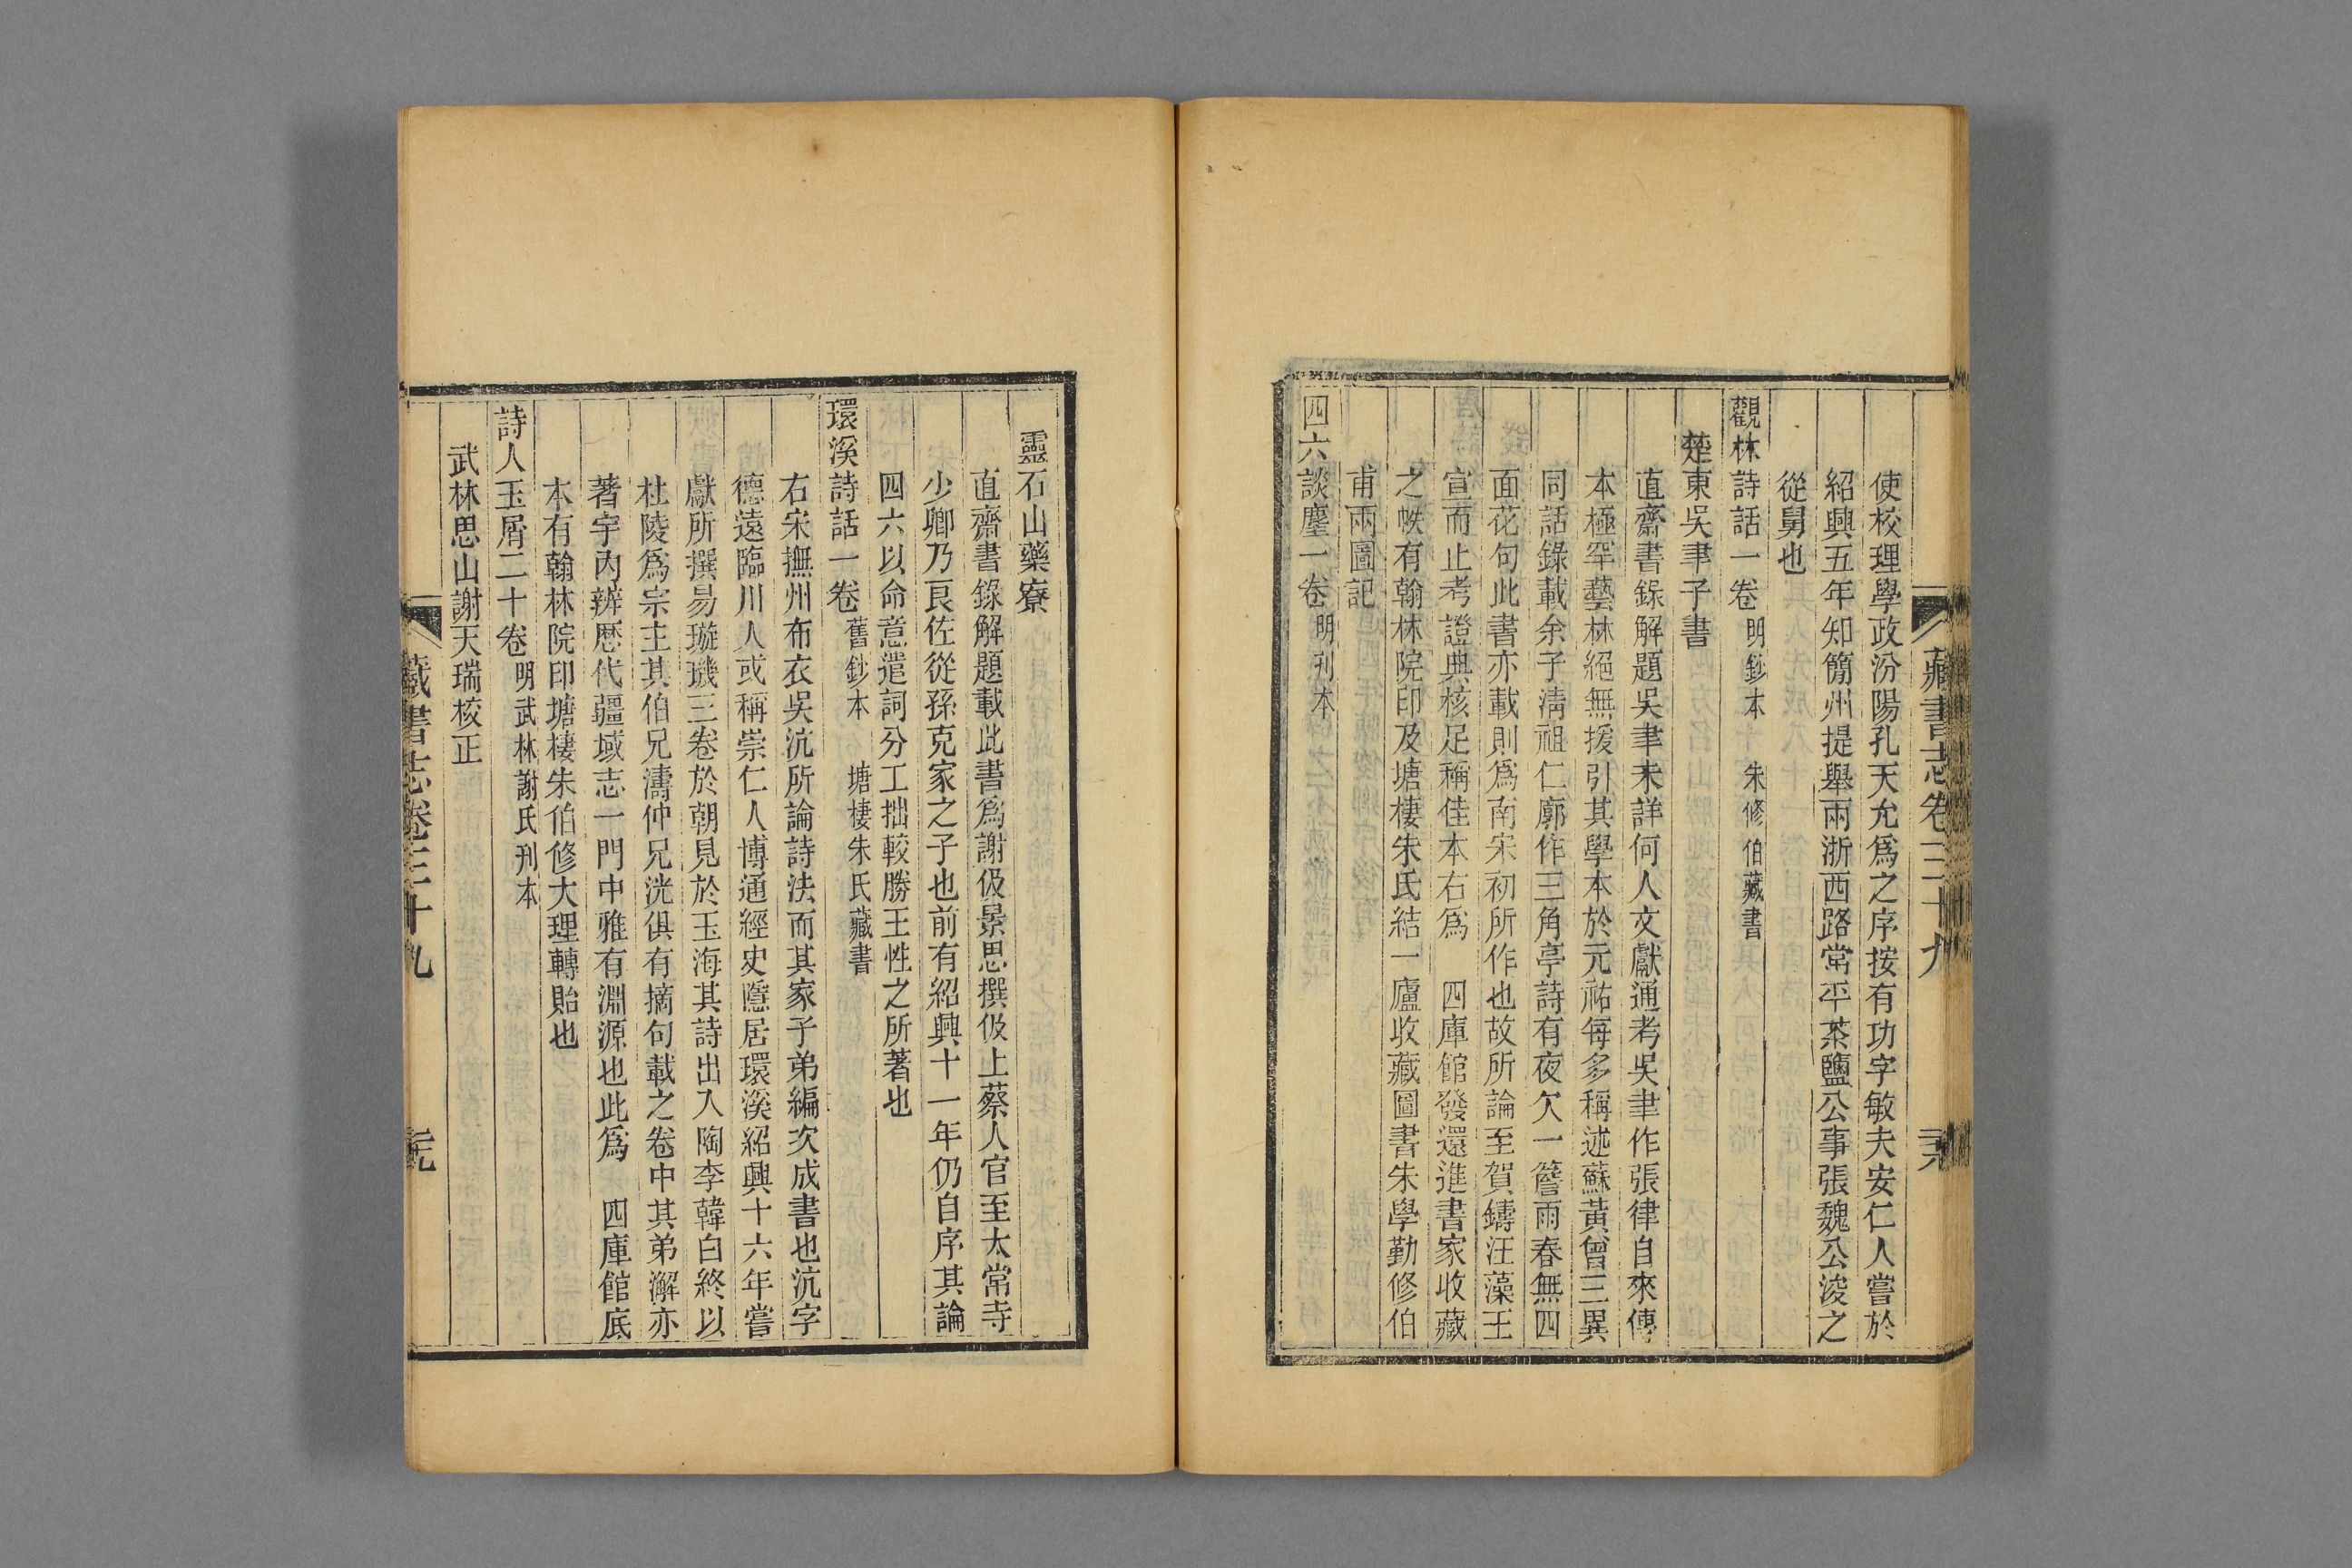 藏書志卷三十九
使校理學政汾陽孔天允爲之序按有功字敏夫安仁人嘗於
紹興五年知簡州提舉兩浙西路常平茶鹽公事張魏公浚之
從舅也
觀林詩話一卷 明鈔本 朱修伯藏書
楚東吳聿子書
直齋書錄解題吳聿未詳何人文獻通考吳聿作張律自來傳
本極罕藝林絕無援引其學本於元祐每多稱述蘇黃曾三異
同話錄載余子淸祖仁廓作三角亭詩有夜欠一簷雨春無四
面花句此書亦載則爲南宋初所作也故所論至賀鑄汪藻王
宣而止考證典核足稱佳本右爲 四庫館發還進書家收藏
之帙有翰林院印及塘棲朱氏結一廬收藏圖書朱學勤修伯
甫兩圖記
四六談麈一卷 明刊本
靈石山藥寮
直齋書錄解題載此書爲謝伋景思撰伋上蔡人官至太常寺
少卿乃良佐從孫克家之子也前有紹興十一年仍自序其論
四六以命意遣詞分工拙較勝王性之所著也
環溪詩話一卷 舊鈔本 塘棲朱氏藏書
右宋撫州布衣吳沆所論詩法而其家子弟編次成書也沆字
德遠臨川人或稱崇仁人博通經史隱居環溪紹興十六年嘗
獻所撰易璇璣三卷於朝見於玉海其詩出入陶李韓白終以
杜陵爲宗主其伯兄濤仲兄洸俱有摘句載之卷中其弟澥亦
著宇內辨歷代疆域志一門中雅有淵源也此爲 四庫館底
本有翰林院印塘棲朱伯修大理轉貽也
詩人玉屑二十卷 明武林謝氏刊本
武林思山謝天瑞校正
藏書志卷三十九